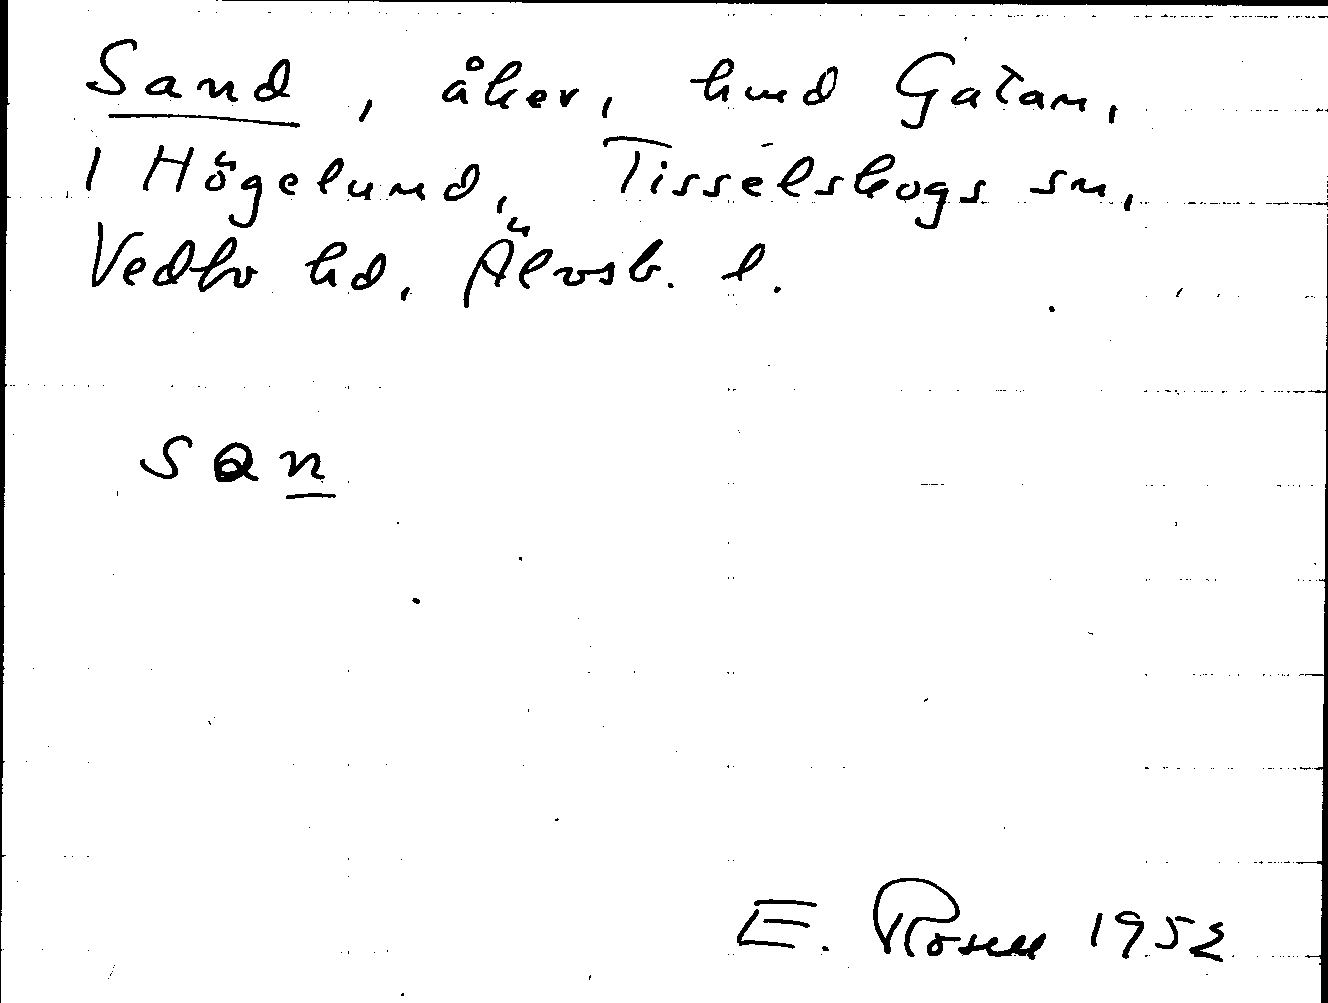 Sand, åker, hmd Gatan,
1 Högelund, Tisselskogs sn,
Vedbo hd, Älvsb. l.
san
E. Rosell 1952